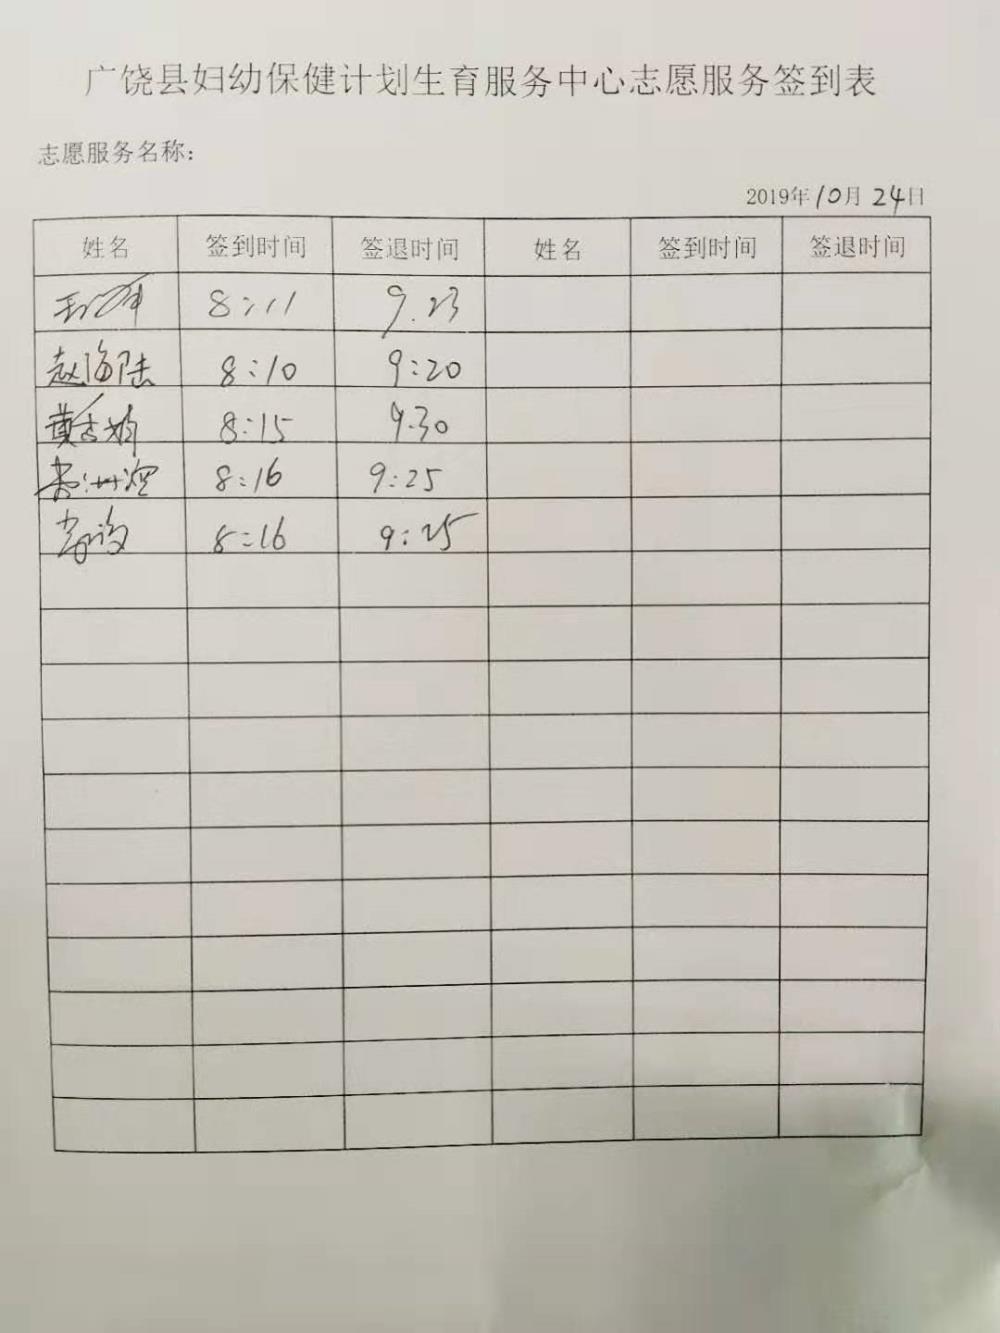 广饶县妇幼保健计划生育服务中心志愿服务签到表
志愿服务名称：
2019年10月24日
姓名 签到时间 签退时间 姓名 签到时间 签退时间
8:11 9.23
赵海陆 8:10 9:20
黄杏娟 8:15 9.30
8:16 9:25
8:16 9:25